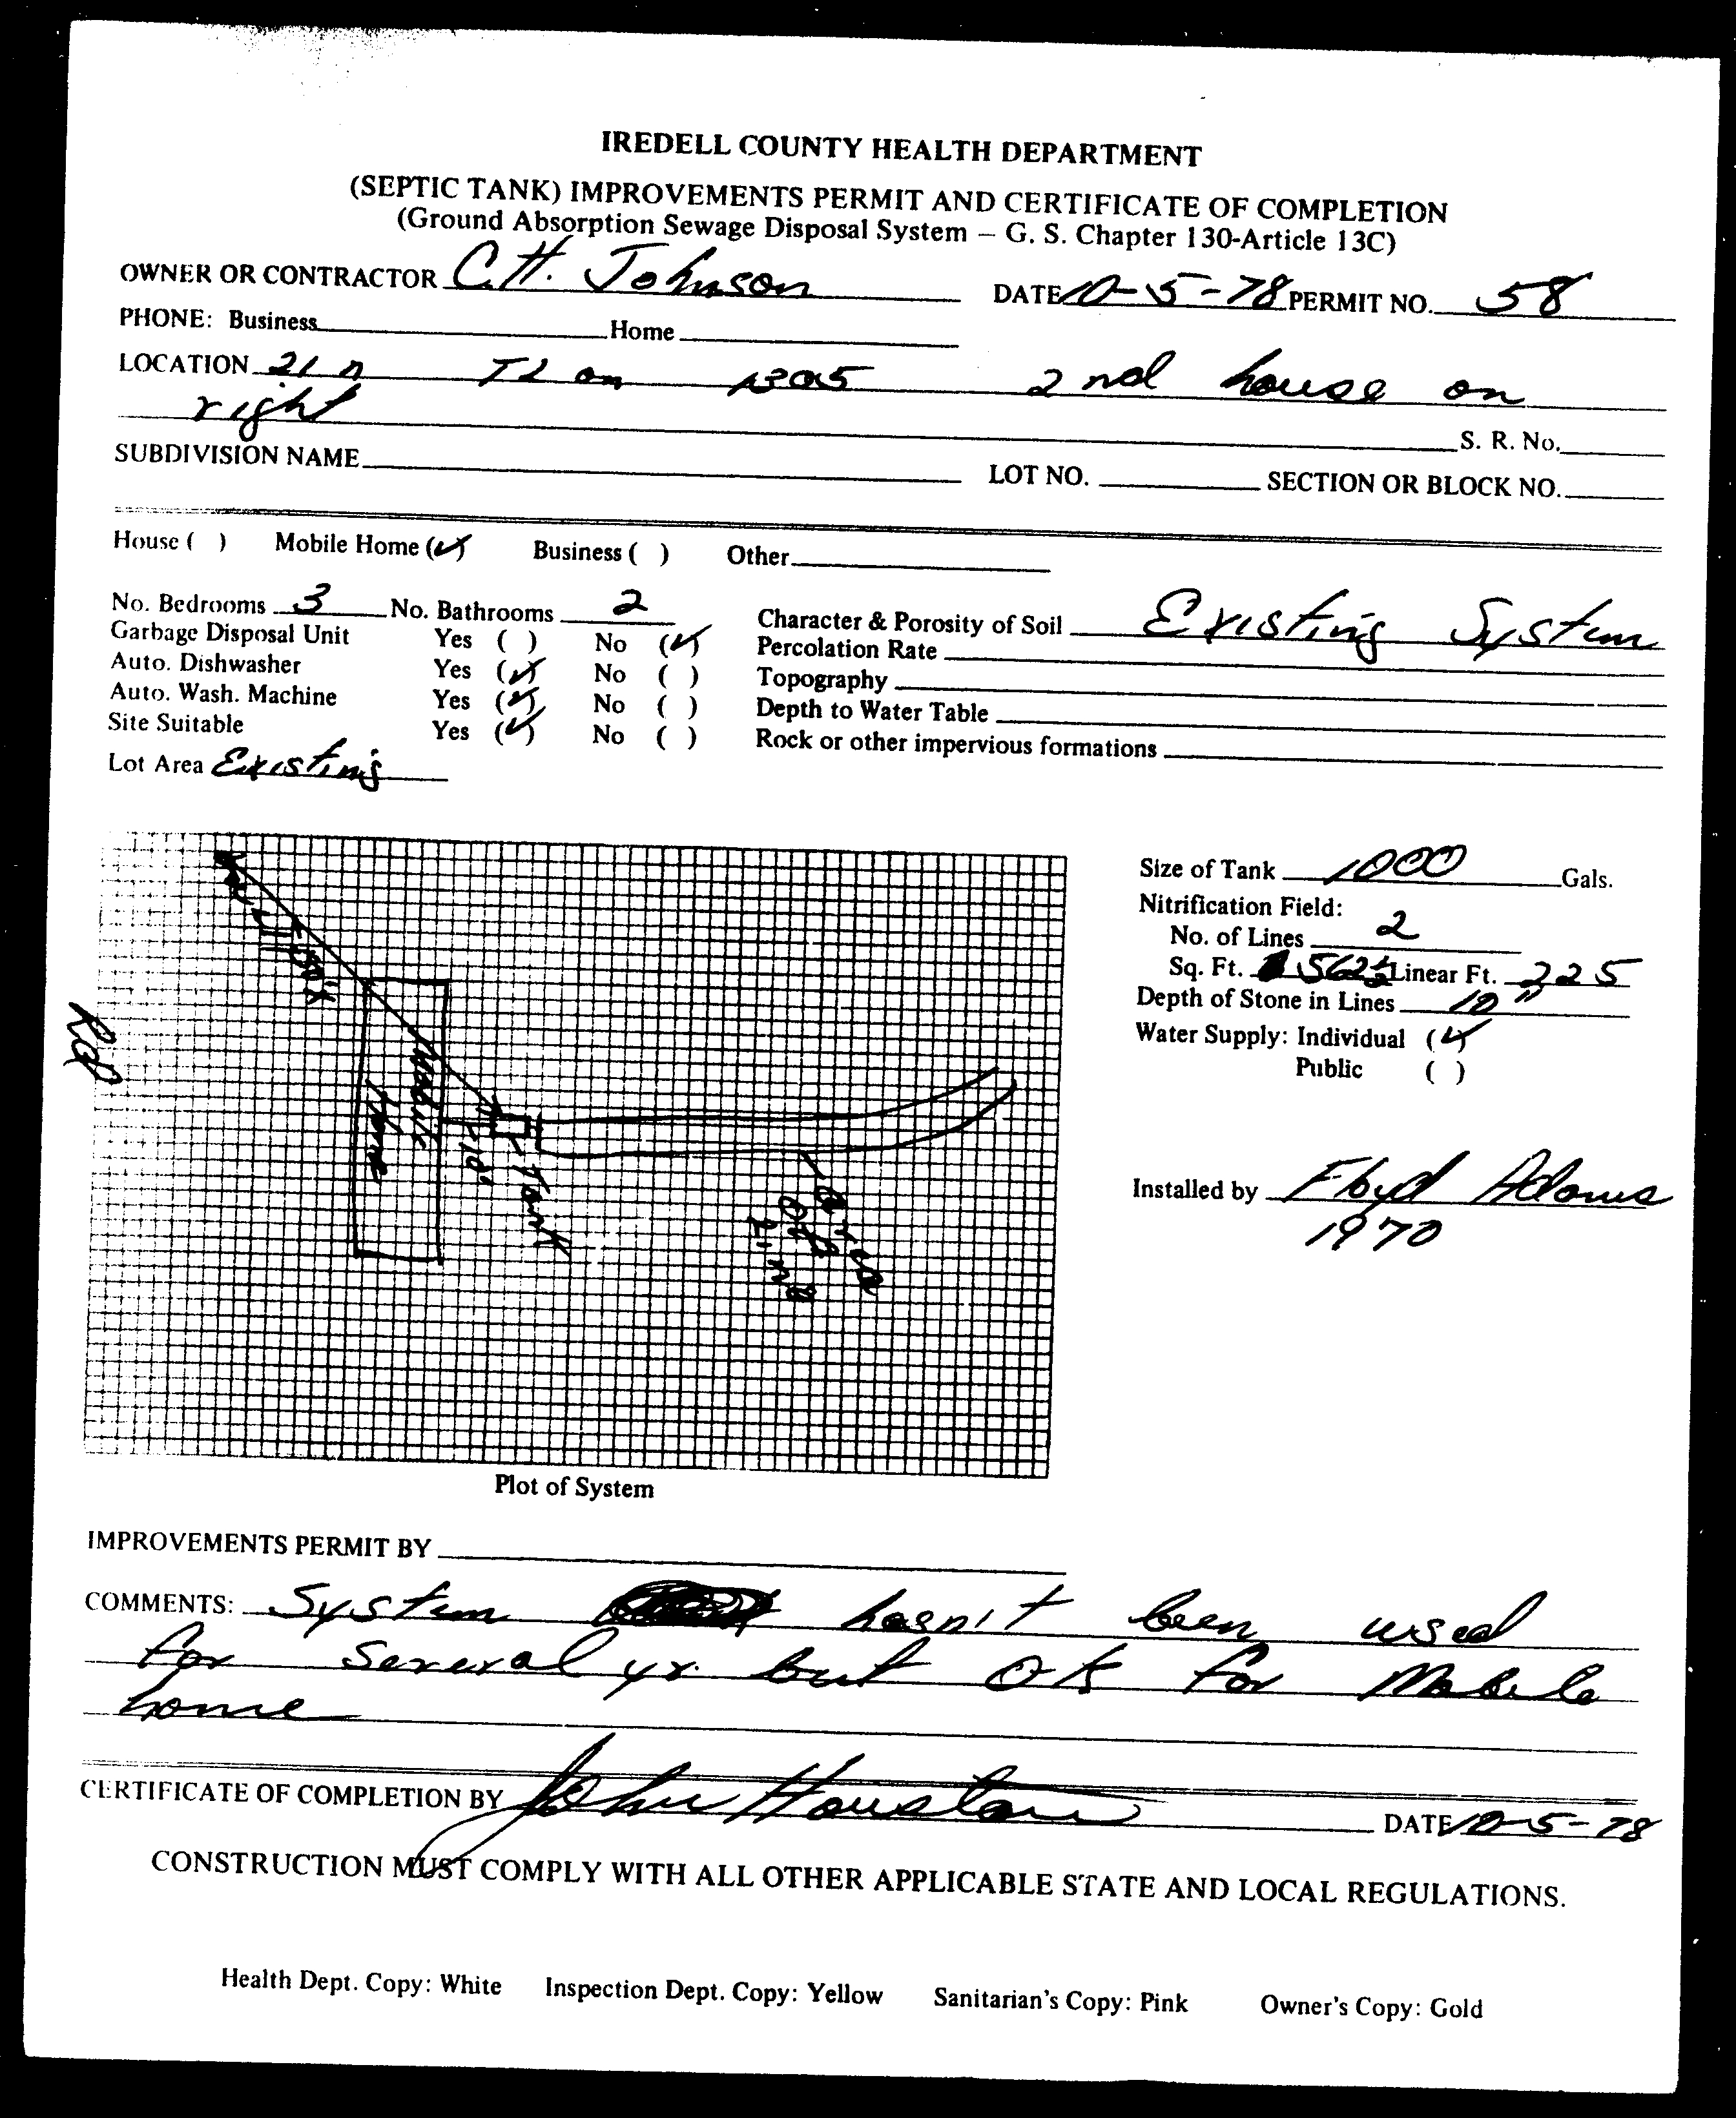 IREDELL COUNTY HEALTH DEPARTMENT
(SEPTIC TANK) IMPROVEMENTS PERMIT AND CERTIFICATE OF COMPLETION
(Ground Absorption Sewage Disposal System – G. S. Chapter 130-Article 13C)
OWNER OR CONTRACTOR C.H. Johnson DATE 10-5-78 PERMIT NO. 58
PHONE: Business Home
LOCATION 21 n TL on 2nd house on
right
S. R. No.
SUBDIVISION NAME LOT NO. SECTION OR BLOCK NO.
House ( ) Mobile Home (✓) Business ( ) Other
No. Bedrooms 3 No. Bathrooms 2 Character & Porosity of Soil Existing System
Garbage Disposal Unit Yes ( ) No (✓) Percolation Rate
Auto. Dishwasher Yes (✓) No ( ) Topography
Auto. Wash. Machine Yes (✓) No ( ) Depth to Water Table
Site Suitable Yes (✓) No ( ) Rock or other impervious formations
Lot Area Existing
Size of Tank 1000 Gals.
Nitrification Field:
No. of Lines 2
Sq. Ft. 562½ Linear Ft. 225
Depth of Stone in Lines 10"
Water Supply: Individual (✓)
Public ( )
Installed by Floyd Adams
1970
Mobile
Home
10'
Tank
Plot of System
IMPROVEMENTS PERMIT BY
COMMENTS: System hasn't been used
for several yr. but OK for Mobile
home
CERTIFICATE OF COMPLETION BY John Houston DATE 10-5-78
CONSTRUCTION MUST COMPLY WITH ALL OTHER APPLICABLE STATE AND LOCAL REGULATIONS.
Health Dept. Copy: White Inspection Dept. Copy: Yellow Sanitarian's Copy: Pink Owner's Copy: Gold